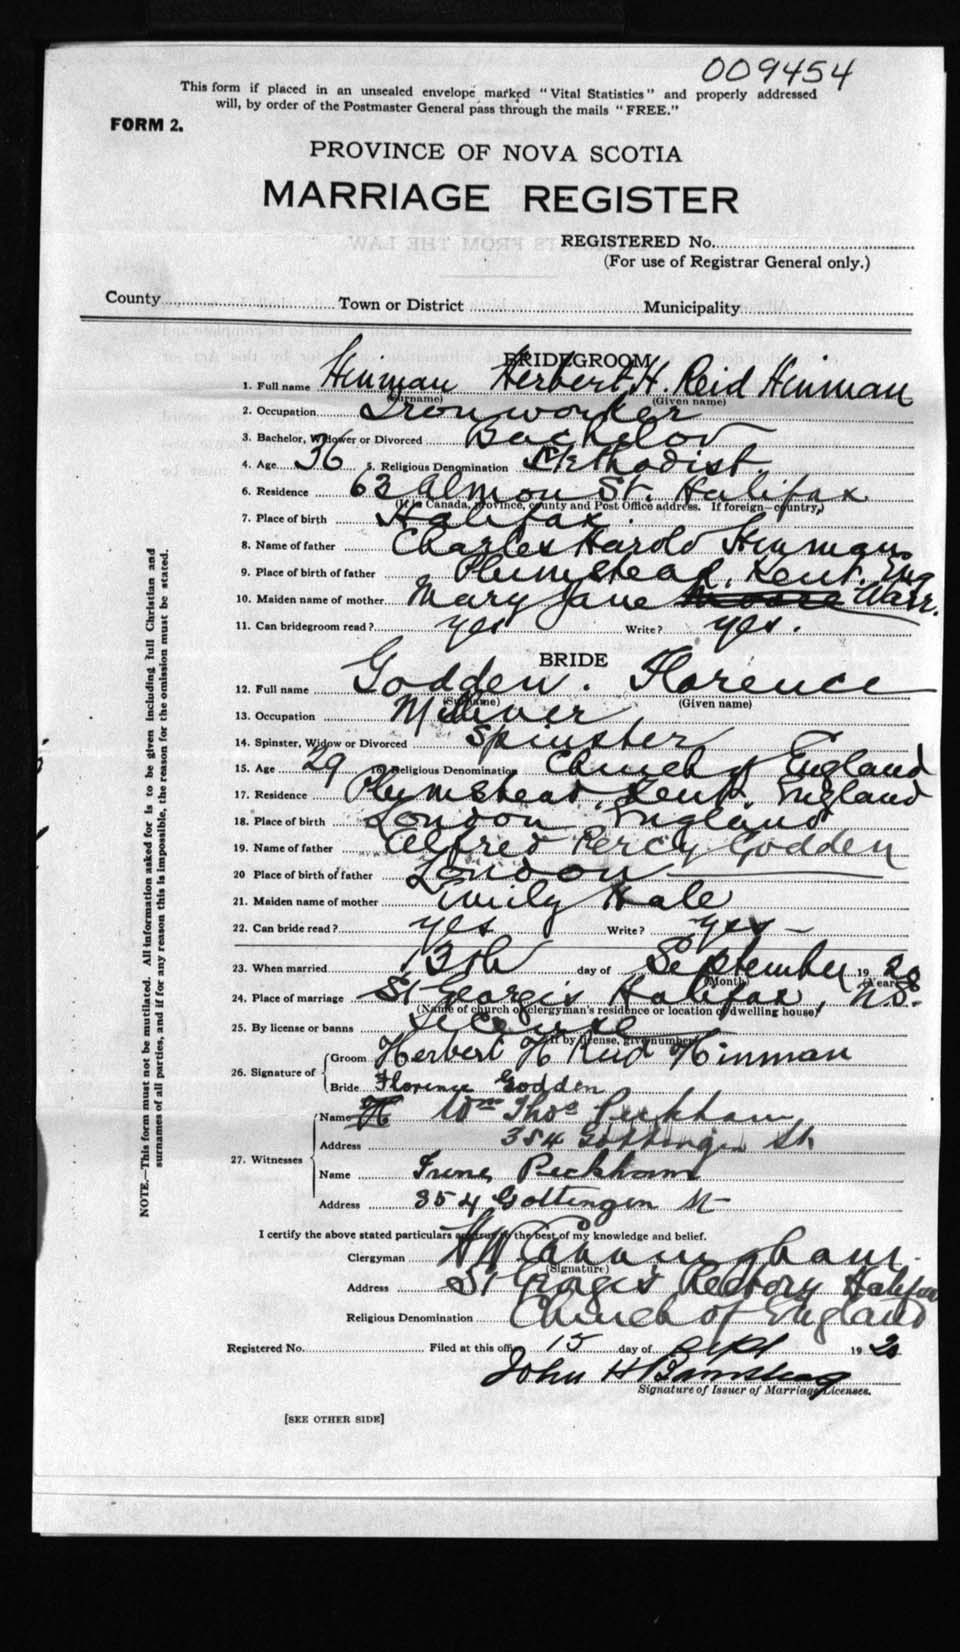 009454
This form if placed in an unsealed envelope marked "Vital Statistics" and properly addressed
will, by order of the Postmaster General pass through the mails "FREE."
FORM 2.
PROVINCE OF NOVA SCOTIA
MARRIAGE REGISTER
REGISTERED No.
(For use of Registrar General only.)
County Town or District Municipality
BRIDEGROOM
1. Full name Hinman Herbert H. Reid Hinman
(Surname) (Given name)
2. Occupation Iron worker
3. Bachelor, Widower or Divorced Bachelor
4. Age 36 5. Religious Denomination Methodist
6. Residence 63 Almon St. Halifax
(If in Canada, province, county and Post Office address. If foreign—country,)
7. Place of birth Halifax
8. Name of father Charles Harold Hinman
9. Place of birth of father Plumstead, Kent, Eng
10. Maiden name of mother Mary Jane Moore Warr.
11. Can bridegroom read? yes Write? yes.
BRIDE
12. Full name Godden. Florence
(Surname) (Given name)
13. Occupation
14. Spinster, Widow or Divorced Spinster
15. Age 29 16. Religious Denomination Church of England
17. Residence Plumstead, Kent, England
18. Place of birth London England
19. Name of father Alfred Percy Godden
20 Place of birth of father London
21. Maiden name of mother Emily Hale
22. Can bride read? yes Write? yes
23. When married 13th day of September 1920
(Month) (Year)
24. Place of marriage St George's Halifax, N.S.
(Name of church or clergyman's residence or location of dwelling house)
25. By license or banns License
(If by license, give number)
26. Signature of Groom Herbert H Reid Hinman
Bride Florence Godden
27. Witnesses Name H Wm Thos Peckham
Address 354 Gottingen St.
Name Irene Peckham
Address 354 Gottingen St
I certify the above stated particulars are true to the best of my knowledge and belief.
Clergyman H W Cunningham
(Signature)
Address St George's Rectory Halifax
Religious Denomination Church of England
Registered No. Filed at this office 15 day of Sept 1920
John H
Signature of Issuer of Marriage Licenses.
[SEE OTHER SIDE]
NOTE.—This form must not be mutilated. All information asked for is to be given including full Christian and
surnames of all parties, and if for any reason this is impossible, the reason for the omission must be stated.